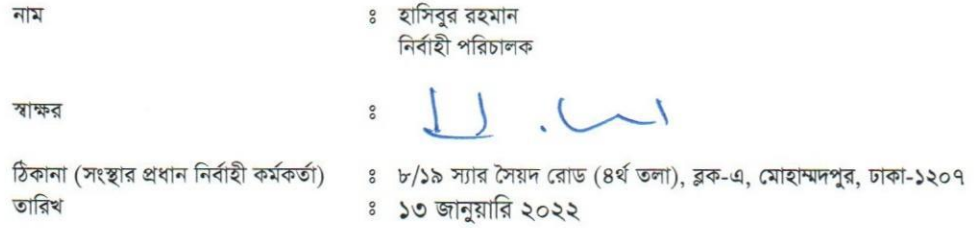 নাম ঃ হাসিবুর রহমান
নির্বাহী পরিচালক
স্বাক্ষর ঃ
ঠিকানা (সংস্থার প্রধান নির্বাহী কর্মকর্তা) ঃ ৮/১৯ স্যার সৈয়দ রোড (৪র্থ তলা), ব্লক-এ, মোহাম্মদপুর, ঢাকা-১২০৭
তারিখ ঃ ১৩ জানুয়ারি ২০২২